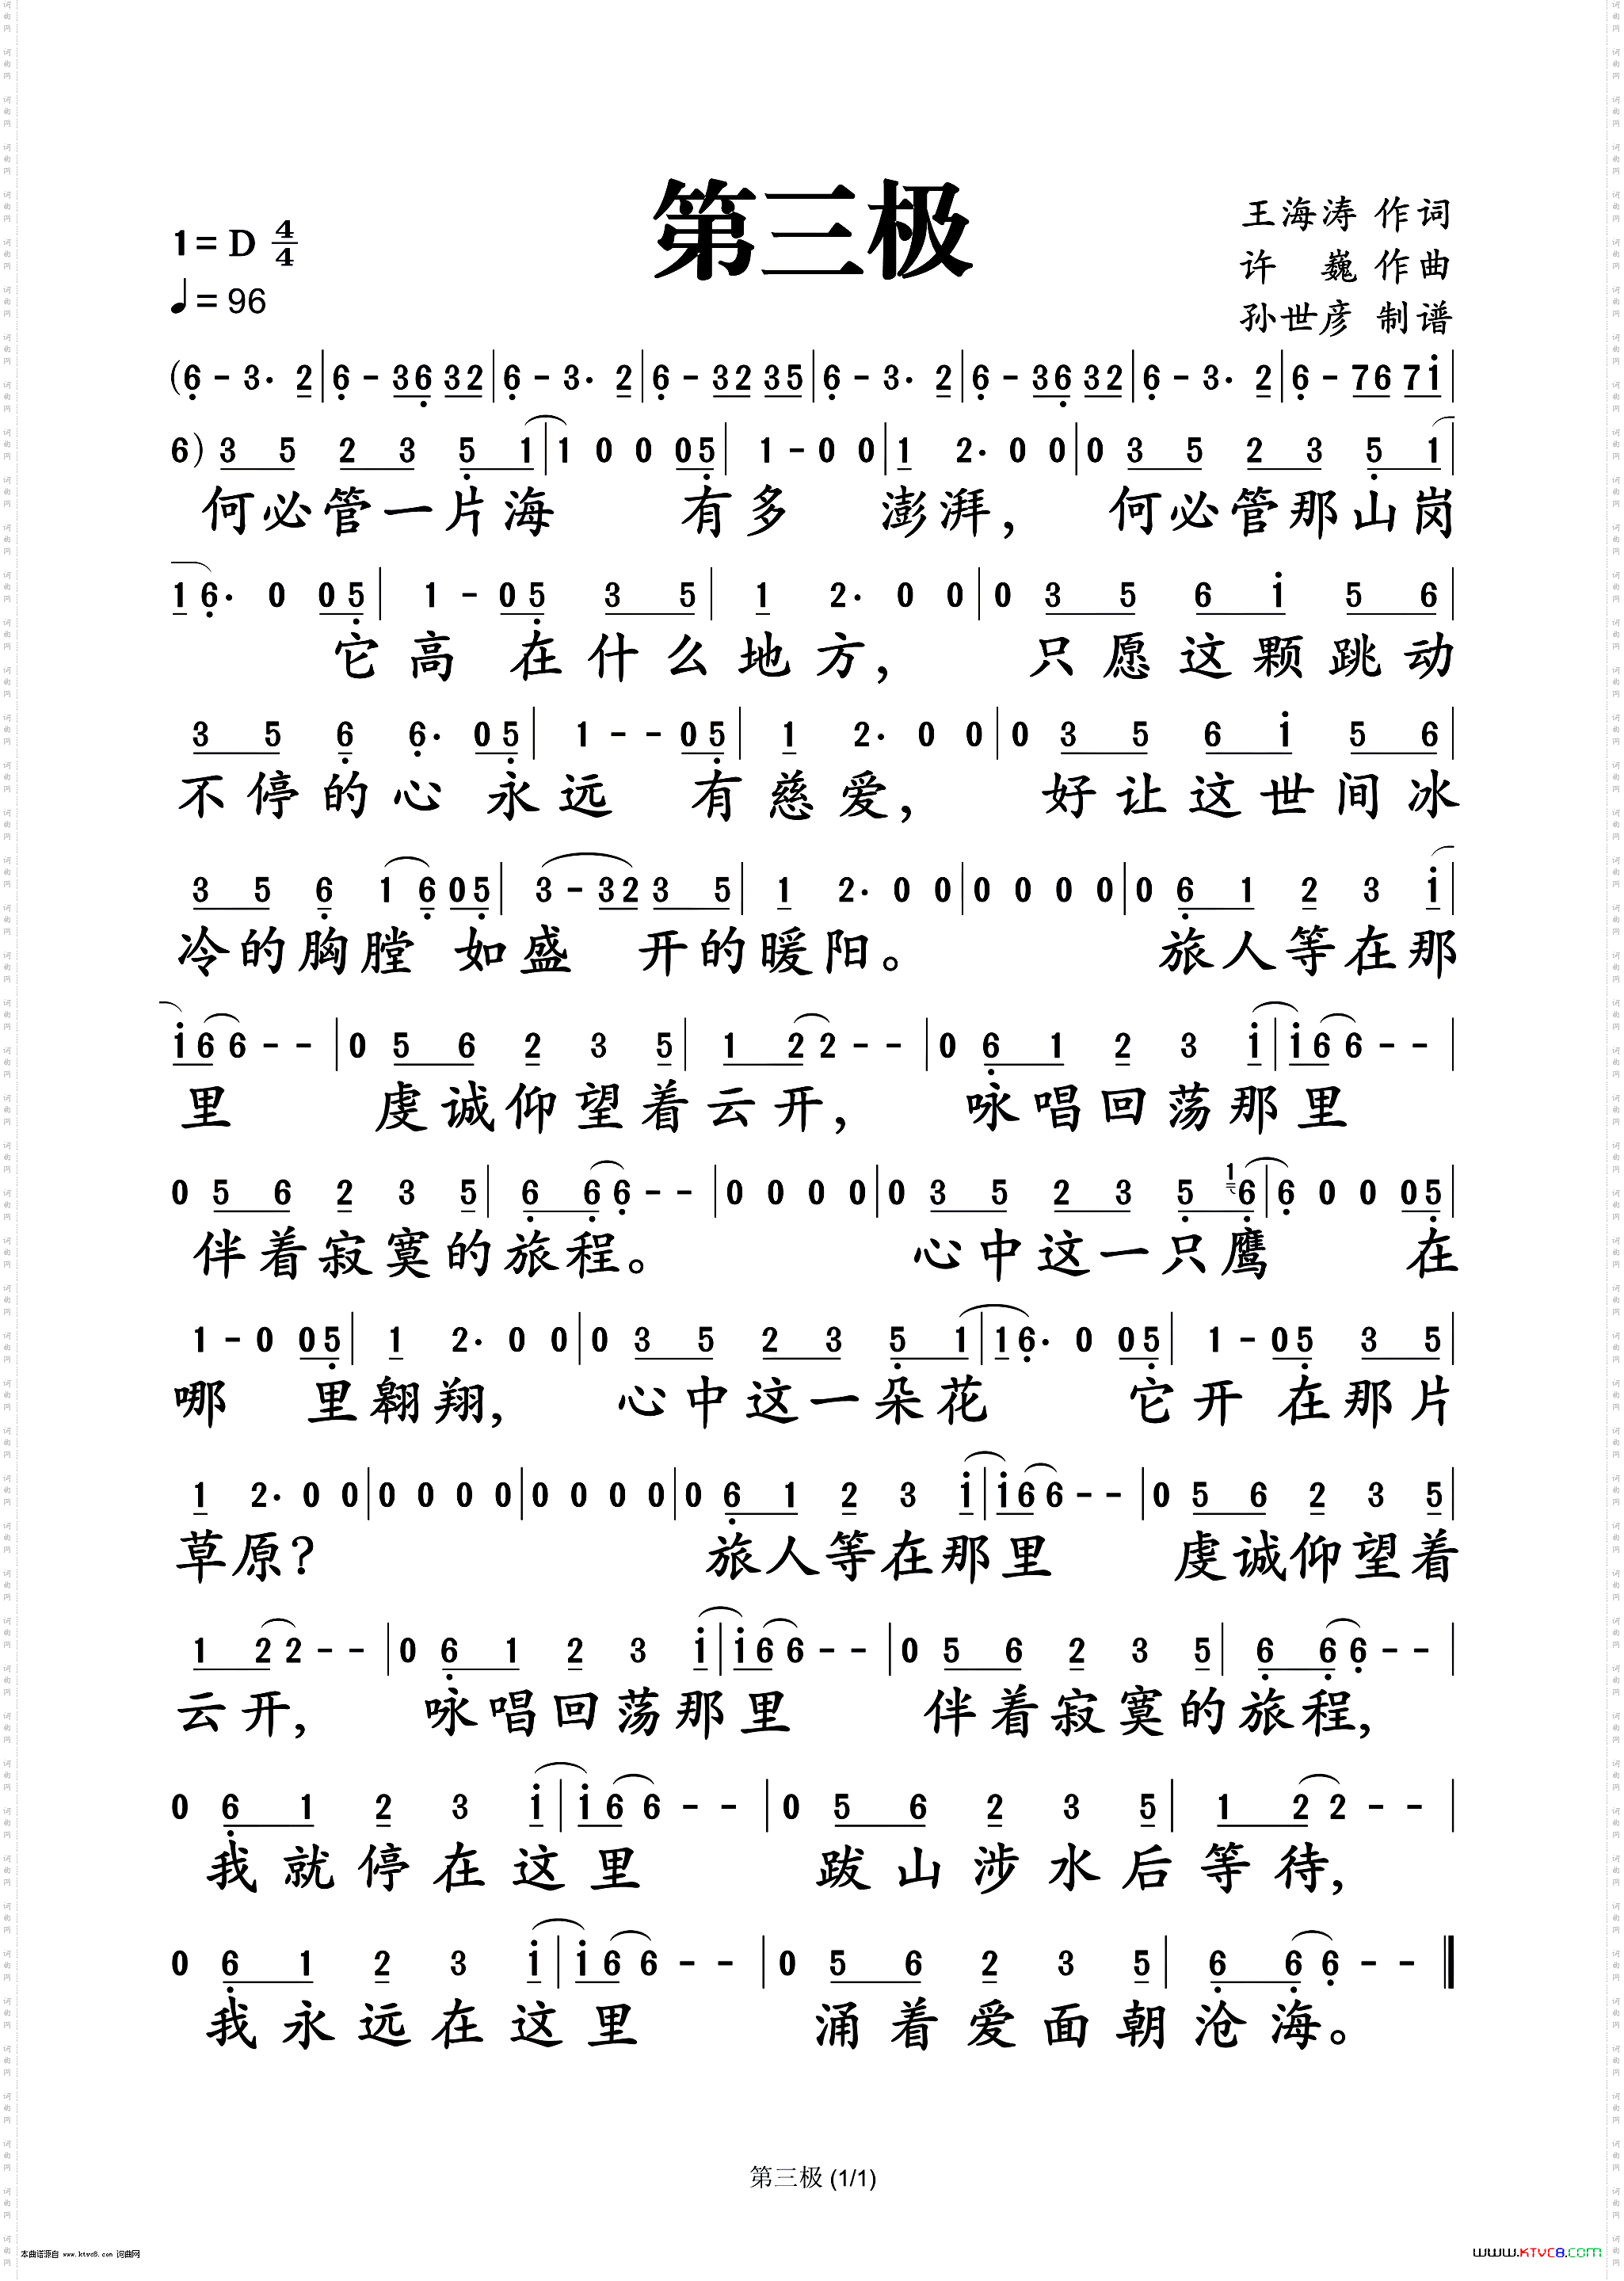 第三极
1=D 4/4
♩=96
王海涛 作词
许 巍 作曲
孙世彦 制谱
(6 - 3· 2|6 - 36 32|6 - 3· 2|6 - 32 35|6 - 3· 2|6 - 36 32|6 - 3· 2|6 - 76 71|
6) 3 5 2 3 5 1|1 0 0 05|1 - 0 0|1 2· 0 0|0 3 5 2 3 5 1|
何必管一片海 有多 澎湃, 何必管那山岗
1 6· 0 05|1 - 05 3 5|1 2· 0 0|0 3 5 6 1 5 6|
它高 在什么地方, 只愿这颗跳动
3 5 6 6· 05|1 - - 05|1 2· 0 0|0 3 5 6 1 5 6|
不停的心 永远 有慈爱, 好让这世间冰
3 5 6 1 6 05|3 - 32 3 5|1 2· 0 0|0 0 0 0|0 6 1 2 3 1|
冷的胸膛 如盛 开的暖阳。 旅人等在那
1 6 6 - -|0 5 6 2 3 5|1 2 2 - -|0 6 1 2 3 1|1 6 6 - -|
里 虔诚仰望着云开, 咏唱回荡那里
0 5 6 2 3 5|6 6 6 - -|0 0 0 0|0 3 5 2 3 5 1 6|6 0 0 05|
伴着寂寞的旅程。 心中这一只鹰 在
1 - 0 05|1 2· 0 0|0 3 5 2 3 5 1|1 6· 0 05|1 - 05 3 5|
哪 里翱翔, 心中这一朵花 它开 在那片
1 2· 0 0|0 0 0 0|0 0 0 0|0 6 1 2 3 1|1 6 6 - -|0 5 6 2 3 5|
草原? 旅人等在那里 虔诚仰望着
1 2 2 - -|0 6 1 2 3 1|1 6 6 - -|0 5 6 2 3 5|6 6 6 - -|
云开, 咏唱回荡那里 伴着寂寞的旅程,
0 6 1 2 3 1|1 6 6 - -|0 5 6 2 3 5|1 2 2 - -|
我就停在这里 跋山涉水后等待,
0 6 1 2 3 1|1 6 6 - -|0 5 6 2 3 5|6 6 6 - -‖
我永远在这里 涌着爱面朝沧海。
第三极 (1/1)
本曲谱源自 www.ktvc8.com 词曲网
WWW.KTVC8.COM